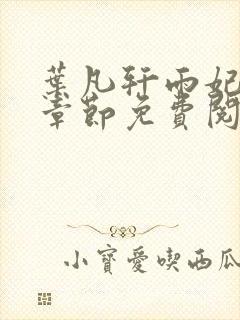 葉凡轩雨妃
章節免費閱
小寶愛喫西瓜